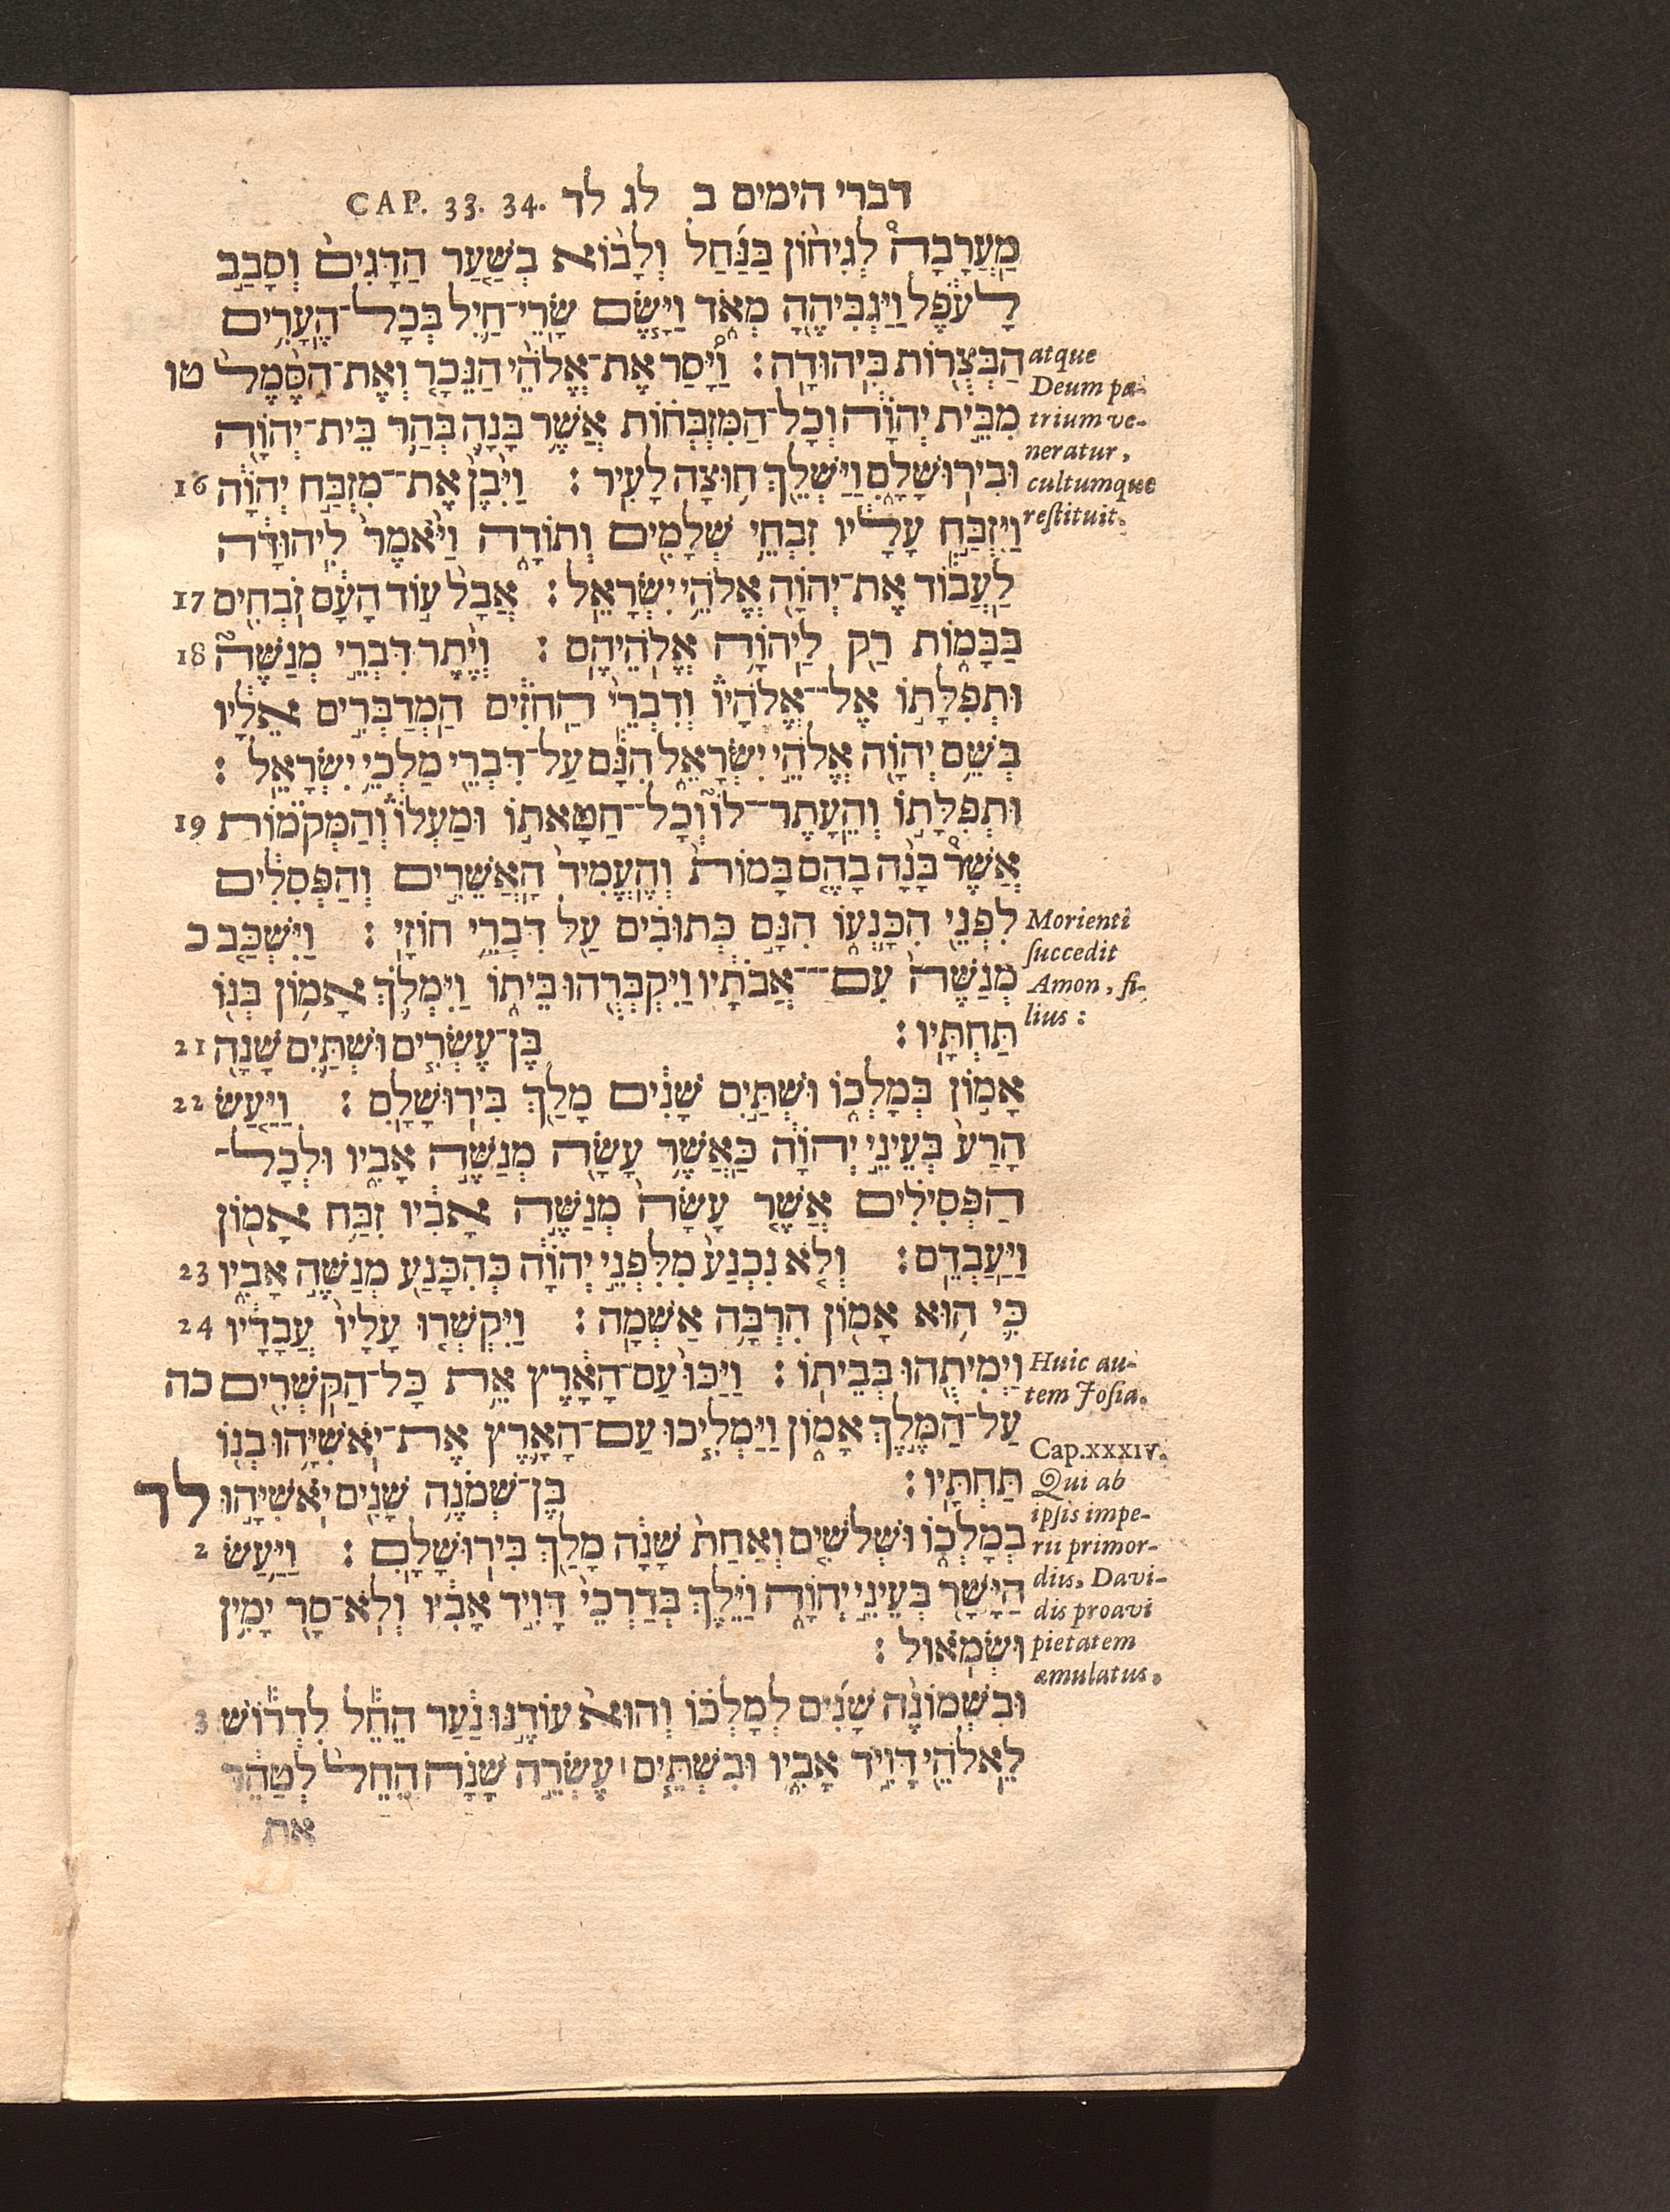 דברי הימים ב לג לד CAP. 33. 34.
מַעֲרָבָה לְגִיחוֹן בַּנַּחַל וְלָבוֹא בְשַׁעַר הַדָּגִים וְסָבַב
לָעֹפֶל וַיַּגְבִּיהֶהָ מְאֹד וַיָּשֶׂם שָׂרֵי־חַיִל בְּכָל־הֶעָרִים
הַבְּצֻרוֹת בִּיהוּדָה׃ וַיָּסַר אֶת־אֱלֹהֵי הַנֵּכָר וְאֶת־הַסֶּמֶל טו
מִבֵּית יְהוָֹה וְכָל־הַמִּזְבְּחוֹת אֲשֶׁר בָּנָה בְּהַר בֵּית־יְהוָֹה
וּבִירוּשָׁלִָם וַיַּשְׁלֵךְ חוּצָה לָעִיר׃ וַיִּבֶן אֶת־מִזְבַּח יְהוָֹה 16
וַיִּזְבַּח עָלָיו זִבְחֵי שְׁלָמִים וְתוֹדָה וַיֹּאמֶר לִיהוּדָה
לַעֲבוֹד אֶת־יְהוָֹה אֱלֹהֵי יִשְׂרָאֵל׃ אֲבָל עוֹד הָעָם זֹבְחִים 17
בַּבָּמוֹת רַק לַיהוָֹה אֱלֹהֵיהֶם׃ וְיֶתֶר דִּבְרֵי מְנַשֶּׁה 18
וּתְפִלָּתוֹ אֶל־אֱלֹהָיו וְדִבְרֵי הַחֹזִים הַמְדַבְּרִים אֵלָיו
בְּשֵׁם יְהוָֹה אֱלֹהֵי יִשְׂרָאֵל הִנָּם עַל־דִּבְרֵי מַלְכֵי יִשְׂרָאֵל׃
וּתְפִלָּתוֹ וְהֵעָתֶר־לוֹ וְכָל־חַטָּאתוֹ וּמַעְלוֹ וְהַמְּקֹמוֹת 19
אֲשֶׁר בָּנָה בָהֶם בָּמוֹת וְהֶעֱמִיד הָאֲשֵׁרִים וְהַפְּסִלִים
לִפְנֵי הִכָּנְעוֹ הִנָּם כְּתוּבִים עַל דִּבְרֵי חוֹזָי׃ וַיִּשְׁכַּב כ
מְנַשֶּׁה עִם־אֲבֹתָיו וַיִּקְבְּרֻהוּ בֵּיתוֹ וַיִּמְלֹךְ אָמוֹן בְּנוֹ
תַּחְתָּיו׃ בֶּן־עֶשְׂרִים וּשְׁתַּיִם שָׁנָה 21
אָמוֹן בְּמָלְכוֹ וּשְׁתַּיִם שָׁנִים מָלַךְ בִּירוּשָׁלִָם׃ וַיַּעַשׂ 22
הָרַע בְּעֵינֵי יְהוָֹה כַּאֲשֶׁר עָשָׂה מְנַשֶּׁה אָבִיו וּלְכָל־
הַפְּסִילִים אֲשֶׁר עָשָׂה מְנַשֶּׁה אָבִיו זִבַּח אָמוֹן
וַיַּעַבְדֵם׃ וְלֹא נִכְנַע מִלִּפְנֵי יְהוָֹה כְּהִכָּנַע מְנַשֶּׁה אָבִיו 23
כִּי הוּא אָמוֹן הִרְבָּה אַשְׁמָה׃ וַיִּקְשְׁרוּ עָלָיו עֲבָדָיו 24
וַיְמִיתֻהוּ בְּבֵיתוֹ׃ וַיַּכּוּ עַם־הָאָרֶץ אֵת כָּל־הַקֹּשְׁרִים כה
עַל־הַמֶּלֶךְ אָמוֹן וַיַּמְלִיכוּ עַם־הָאָרֶץ אֶת־יֹאשִׁיָּהוּ בְנוֹ
תַּחְתָּיו׃ בֶּן־שְׁמֹנֶה שָׁנִים יֹאשִׁיָּהוּ לד
בְמָלְכוֹ וּשְׁלֹשִׁים וְאַחַת שָׁנָה מָלַךְ בִּירוּשָׁלִָם׃ וַיַּעַשׂ 2
הַיָּשָׁר בְּעֵינֵי יְהוָֹה וַיֵּלֶךְ בְּדַרְכֵי דָּוִיד אָבִיו וְלֹא־סָר יָמִין
וּשְׂמֹאול׃
וּבִשְׁמוֹנֶה שָׁנִים לְמָלְכוֹ וְהוּא עוֹדֶנּוּ נַעַר הֵחֵל לִדְרוֹשׁ 3
לֵאלֹהֵי דָּוִיד אָבִיו וּבִשְׁתֵּים ׀ עֶשְׂרֵה שָׁנָה הֵחֵל לְטַהֵר
את
atque
Deum pa-
trium ve-
neratur,
cultumque
restituit.
Morienti
succedit
Amon, fi-
lius:
Huic au-
tem Josia.
Cap. XXXIV.
Qui ab
ipsis impe-
rii primor-
diis, Davi-
dis proavi
pietatem
æmulatus.